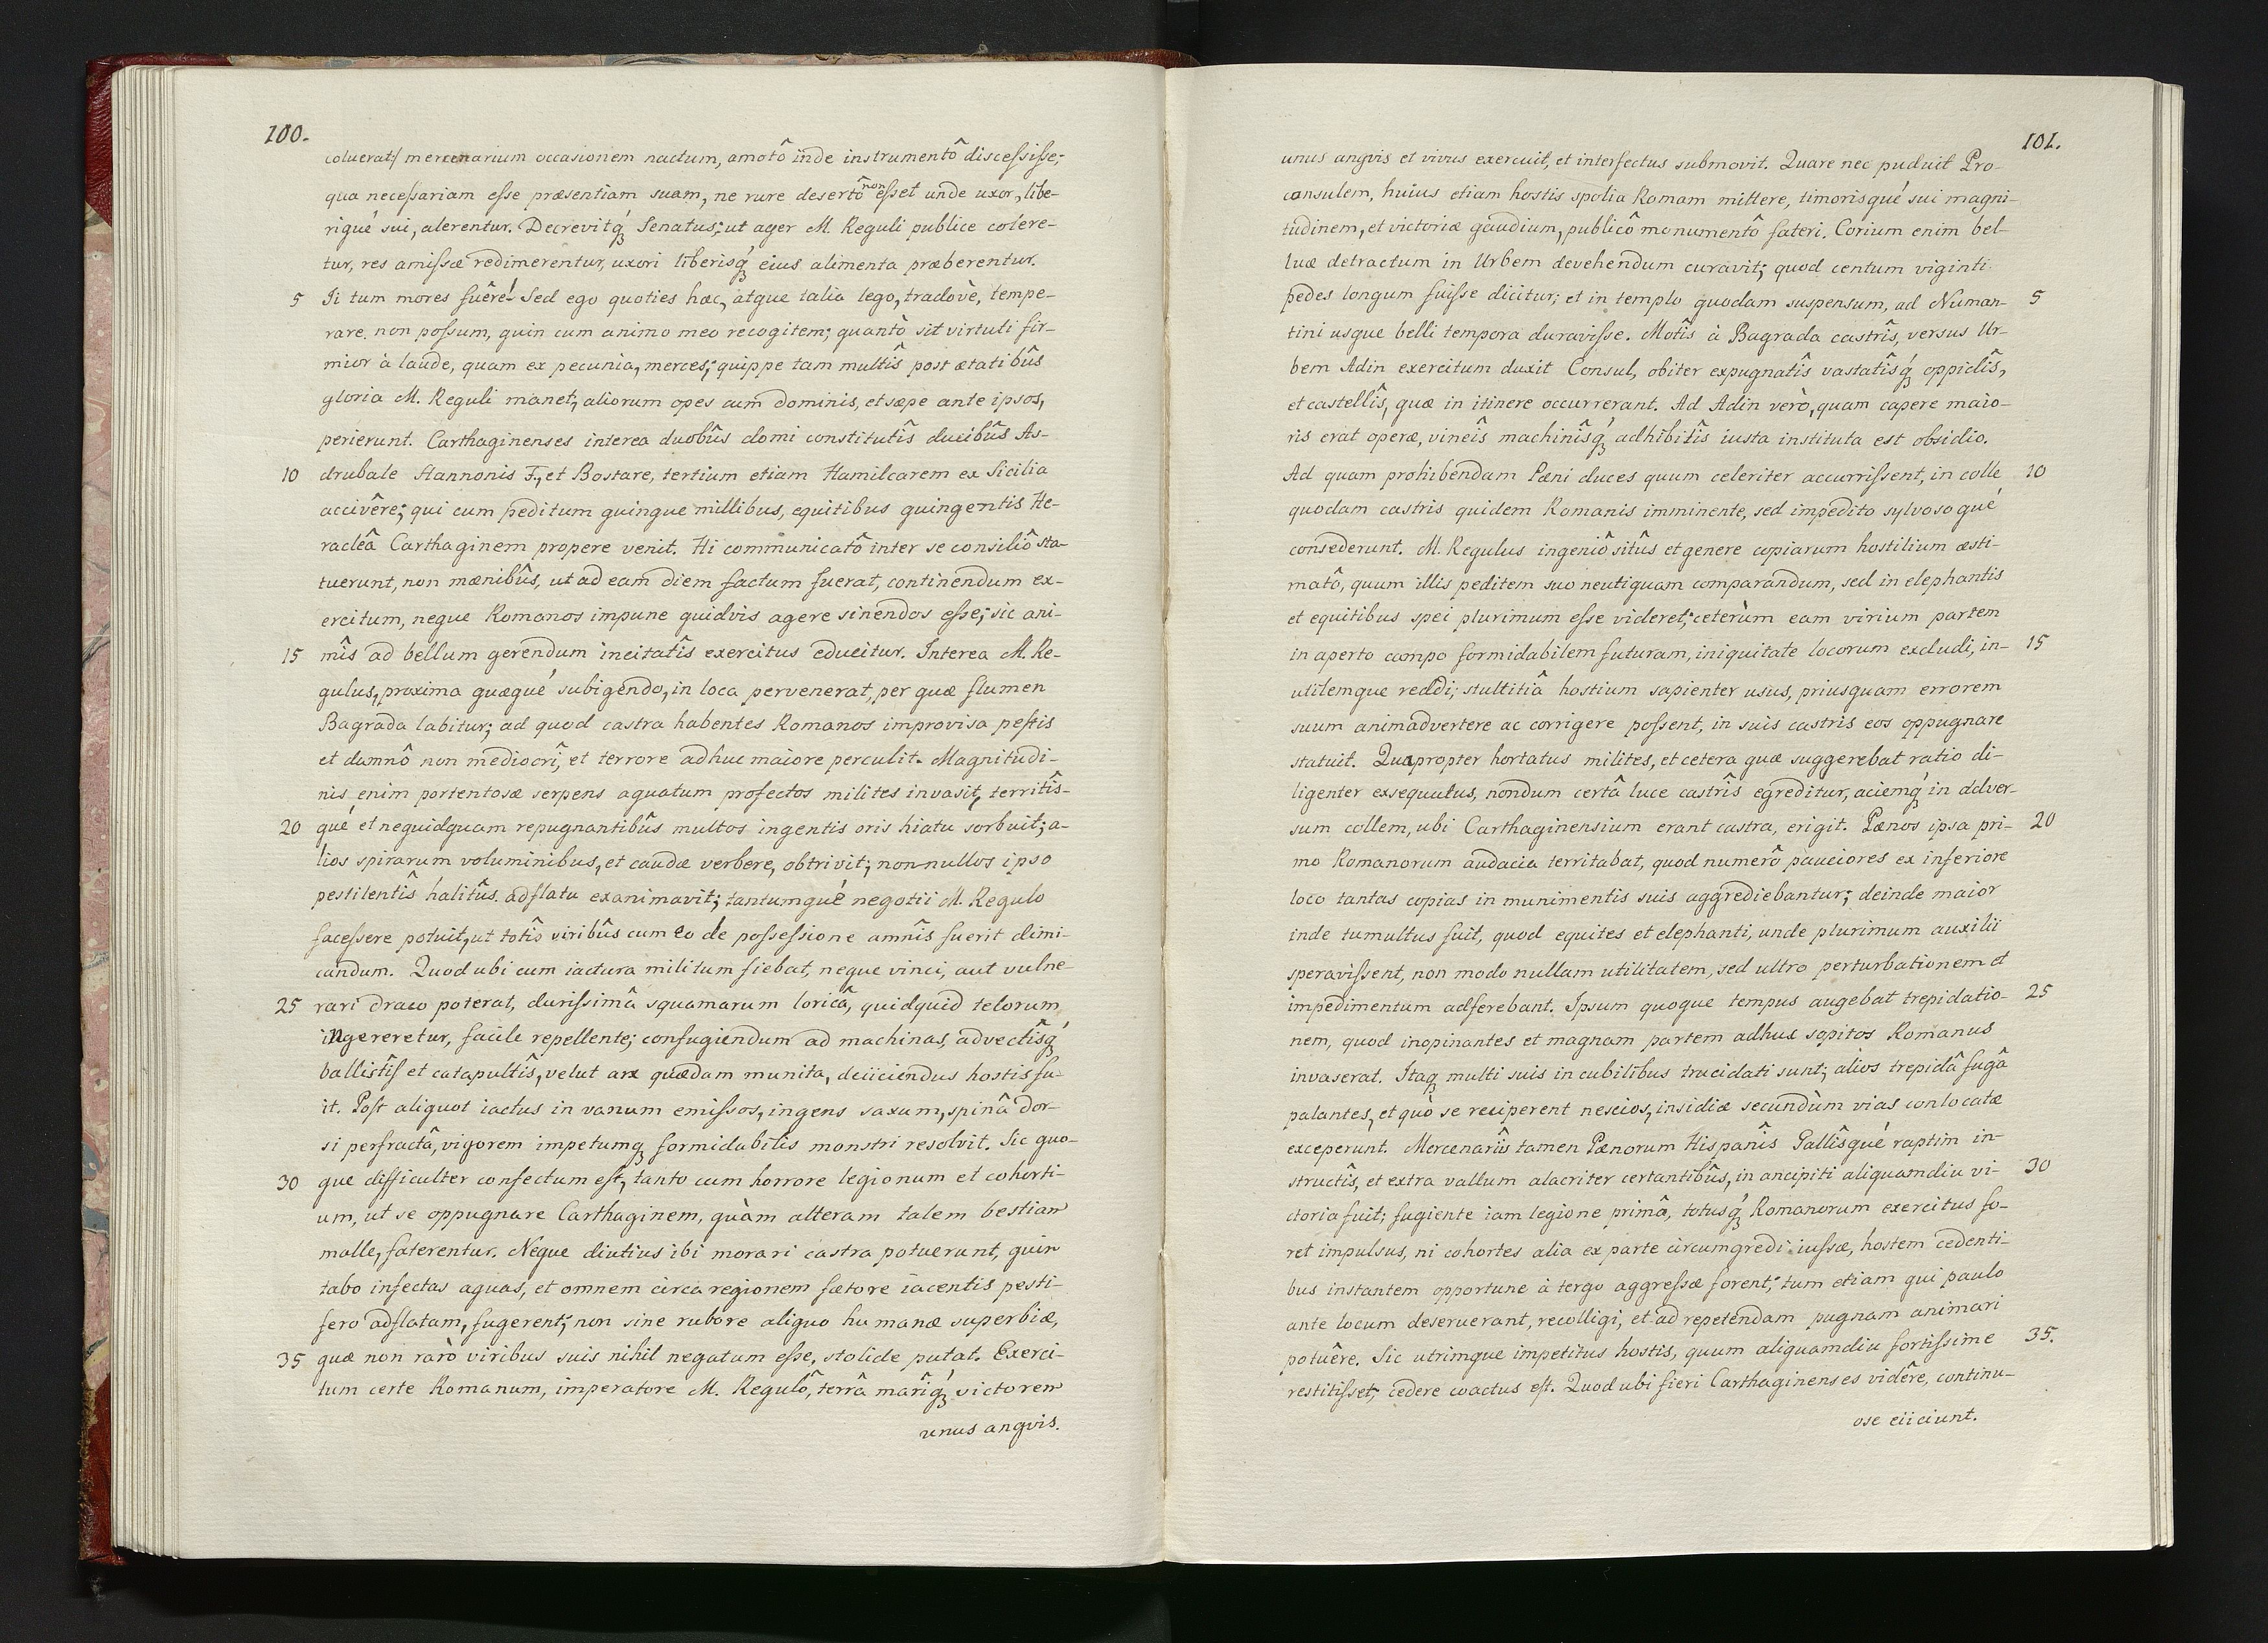 100.
coluerat/ mercenarium occasionem nactum, amotô inde instrumentô discessisse;
qua necessariam esse præsentiam suam, ne rure desertô non esset unde uxor, libe-
riqué sui, alerentur. Decrevitq́ꝫ Senatus; ut ager M. Reguli publice colere-
tur, res amissæ redimerentur, uxori liberisq́ꝫ eius alimenta præberentur.
5 Ii tum mores fuêre! Sed ego quoties hæc, atque talia lego, tradove, tempe-
rare non possum, quin cum animo meo recogitem; quantò sit virtuti fir-
mior à laude, quam ex pecunia, merces; quippe tam multîs post ætatibûs
gloria M. Reguli manet; aliorum opes cum dominis, et sæpe ante ipsos,
perierunt. Carthaginenses interea duobûs domi constitutîs ducibûs As-
10 drubale Hannonis F., et Bostare, tertium etiam Hamilcarem ex Sicilia
accivêre; qui cum peditum quinque millibus, equitibus quingentis He-
racleâ Carthaginem propere venit. Hi communicatô inter se consiliô sta-
tuerunt, non mænibûs, ut ad eam diem factum fuerat, continendum ex-
ercitum, neque Romanos impune quidvis agere sinendos esse; sic ani-
15 mîs ad bellum gerendum incitatîs exercitus educitur. Interea M. Re-
gulus, proxima quæqué subigendo, in loca pervenerat, per quæ flumen
Bagrada labitur; ad quod castra habentes Romanos improvisa pestis
et damnô non mediocrî, et terrore adhuc maiore perculit. Magnitudi-
nis enim portentosæ serpens aquatum profectos milites invasit, territîs-
20 qué et nequidquam repugnantibûs multos ingentis oris hiatu sorbuit; a-
lios spirarum voluminibus, et caudæ verbere, obtrivit; non-nullos ipso
pestilentîs halitûs adflatu exanimavit; tantumqué negotii M. Regulo
facessere potuit, ut totîs viribûs cum eo de possessione amnîs fuerit dimi-
candum. Quod ubi cum iactura militum fiebat, neque vinci, aut vulne-
25 rari draco poterat, durissimâ squamarum loricâ, quidquid telorum
ingereretur, facile repellente; confugiendum ad machinas, advectîsq́ꝫ
ballistîs et catapultîs, velut arx quædam munita, deiiciendus hostis fu-
it. Post aliquot iactus in vanum emissos, ingens saxum, spinâ dor-
si perfractâ, vigorem impetumqꝫ formidabilis monstri resolvit. Sic quo-
30 que difficulter confectum est, tanto cum horrore legionum et cohorti-
um, ut se oppugnare Carthaginem, quàm alteram talem bestiam
malle, faterentur. Neque diutius ibi morari castra potuerunt, quin
tabo infectas aquas, et omnem circa regionem fætore iacentis pesti-
fero adflatam, fugerent; non sine rubore aliquo humanæ superbiæ,
35 quæ non rarò viribus suis nihil negatum esse, stolide putat. Exerci-
tum certe Romanum, imperatore M. Regulô, terrâ marîq́ꝫ victorem
unus angvis.
101.
unus angvis et vivus exercuit, et interfectus submovit. Quare nec puduit Pro-
consulem, huius etiam hostis spolia Romam mittere, timorisqué sui magni-
tudinem, et victoriæ gaudium, publicô monumentô fateri. Corium enim bel-
luæ detractum in Urbem devehendum curavit; quod centum viginti
5 pedes longum fuisse dicitur; et in templo quodam suspensum, ad Numan-
tini usque belli tempora duravisse. Motîs à Bagrada castrîs, versus Ur-
bem Adin exercitum duxit Consul, obiter expugnatîs vastatîsq́ꝫ oppidîs,
et castellîs, quæ in itinere occurrerant. Ad Adin verò, quam capere maio-
ris erat operæ, vineîs machinîsq́ꝫ adhibitîs iusta instituta est obsidio.
10 Ad quam prohibendam Pæni duces quum celeriter accurrissent, in colle
quodam castris quidem Romanis imminente, sed impedito sylvosoqué
consederunt. M. Regulus ingeniô sitûs et genere copiarum hostilium æsti-
matô, quum illis peditem suo neutiquam comparandum, sed in elephantis
et equitibus spei plurimum esse videret; ceterùm eam virium partem
15 in aperto campo formidabilem futuram, iniquitate locorum excludi, in-
utilemque reddi; stultitiâ hostium sapienter usus, priusquam errorem
suum animadvertere ac corrigere possent, in suis castris eos oppugnare
statuit. Quapropter hortatus milites, et cetera quæ suggerebat ratio di-
ligenter exsequutus, nondum certâ luce castrîs egreditur, aciemq́ꝫ in adver-
20 sum collem, ubi Carthaginensium erant castra, erigit. Pænos ipsa pri-
mo Romanorum audacia territabat, quod numerô pauciores ex inferiore
loco tantas copias in munimentis suis aggrediebantur; deinde maior
inde tumultus fuit, quod equites et elephanti, unde plurimum auxilii
speravissent, non modo nullam utilitatem, sed ultro perturbationem et
25 impedimentum adferebant. Ipsum quoque tempus augebat trepidatio-
nem, quod inopinantes et magnam partem adhuc sopitos Romanus
invaserat. Itaqꝫ multi suis in cubilibus trucidati sunt; alios trepidâ fugâ
palantes, et quò se reciperent nescios, insidiæ secundùm vias conlocatæ
exceperunt. Mercenariîs tamen Pænorum Hispanîs Gallîsqué raptim in-
30 structîs, et extra vallum alacriter certantibûs, in ancipiti aliquamdiu vi-
ctoria fuit; fugiente iam legione primâ, totusq́ꝫ Romanorum exercitus fo-
ret impulsus, ni cohortes alia ex parte circumgredi iussæ, hostem cedenti-
bus instantem opportune à tergo aggressæ forent; tum etiam qui paulo
ante locum deseruerant, recolligi, et ad repetendam pugnam animari
35. potuêre. Sic utrimque impetitus hostis, quum aliquamdiu fortissime
restitisset, cedere coactus est. Quod ubi fieri Carthaginenses vidêre, continu-
ose eiiciunt.